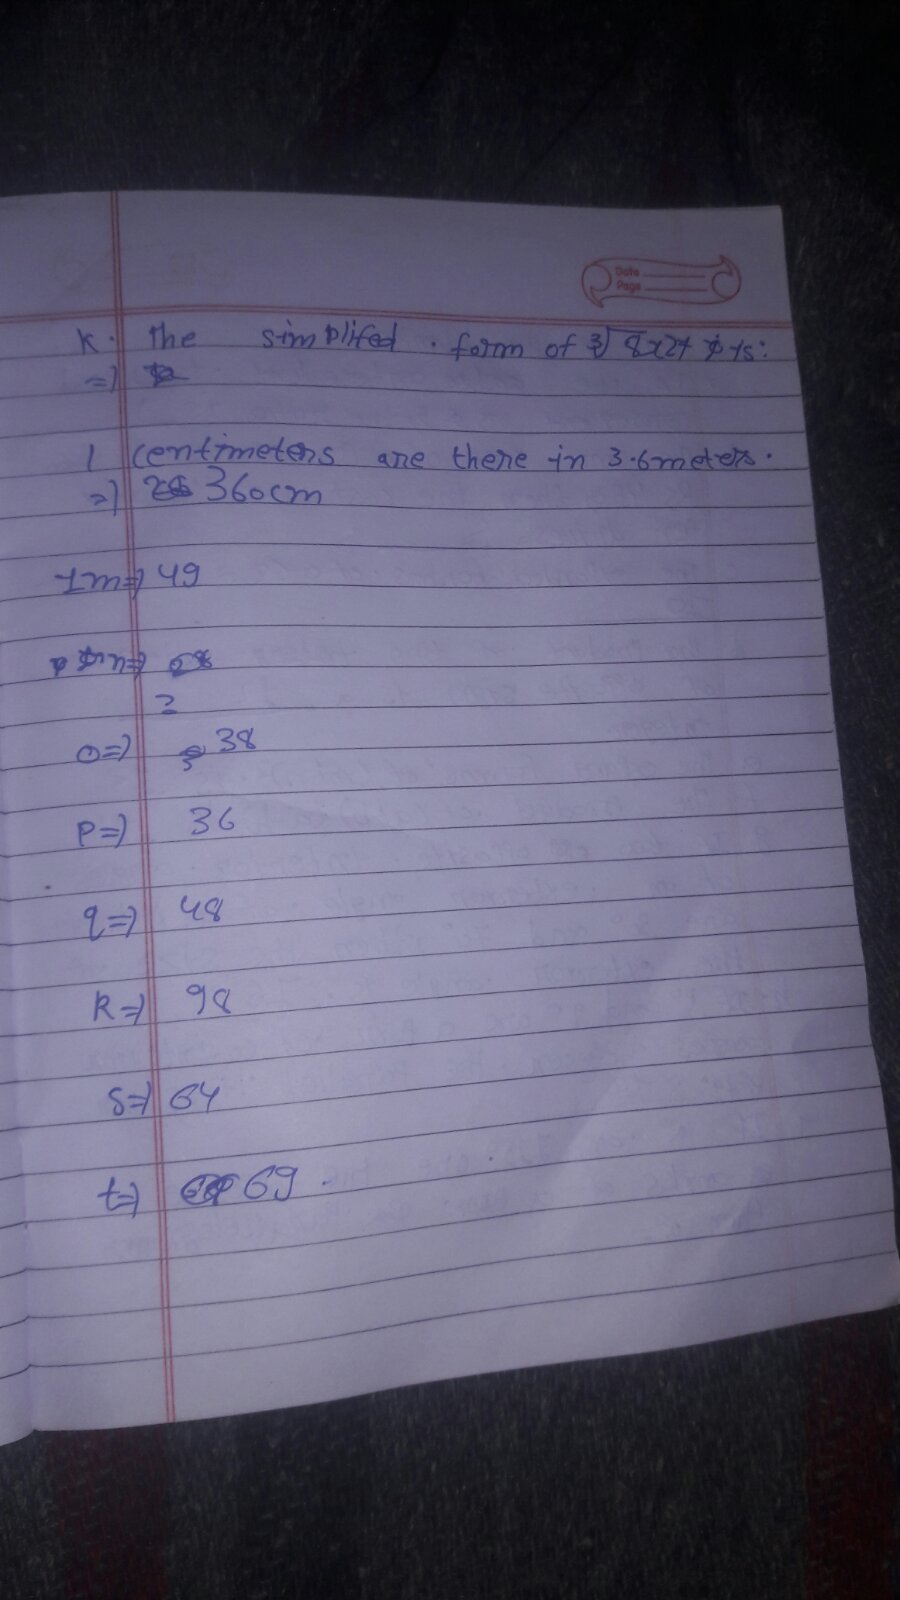 Date
Page
K. The simplifed . form of ∛8x27 is:
=)
l centimeters are there in 3.6meters.
=) 360cm
1m=) 49
n=)
2
o=) 38
p=) 36
q=) 48
R=) 98
s=) 64
t=) 69.